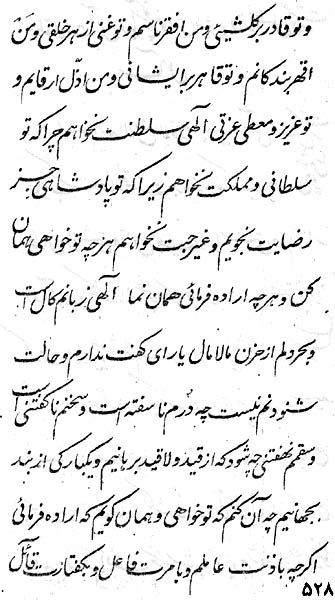 و تو قادر بر کلشیئی و من افقر ناسم و تو غنی از هر خلقی و من
اقهر بندگانم و تو قاهر بر ایشانی و من اذل ارقایم و
تو عزیز و معطی عزتی الهی سلطنت نخواهم چرا که تو
سلطانی و مملکت نخواهم زیرا که تو پادشاهی جز
رضایت نجویم و غیر حبت نخواهم هر چه تو خواهی همان
کن و هر چه اراده فرمائی همان نما الهی زبانم کال است
و بحر دلم از حزن مالامال یارای گفت ندارم و حالت
شنودنم نیست چه درم ناسفته است و سخنم ناگفتنی است
و سقمم نهفتنی چه شود که از قید و لا قید برهانیم و یکبارگی از بند
بجهانیم چه آن کنم که تو خواهی و همان گویم که اراده فرمائی
اگر چه باذنت عاملم و بامرت فاعل و بگفتارت قائل
۵۲۸